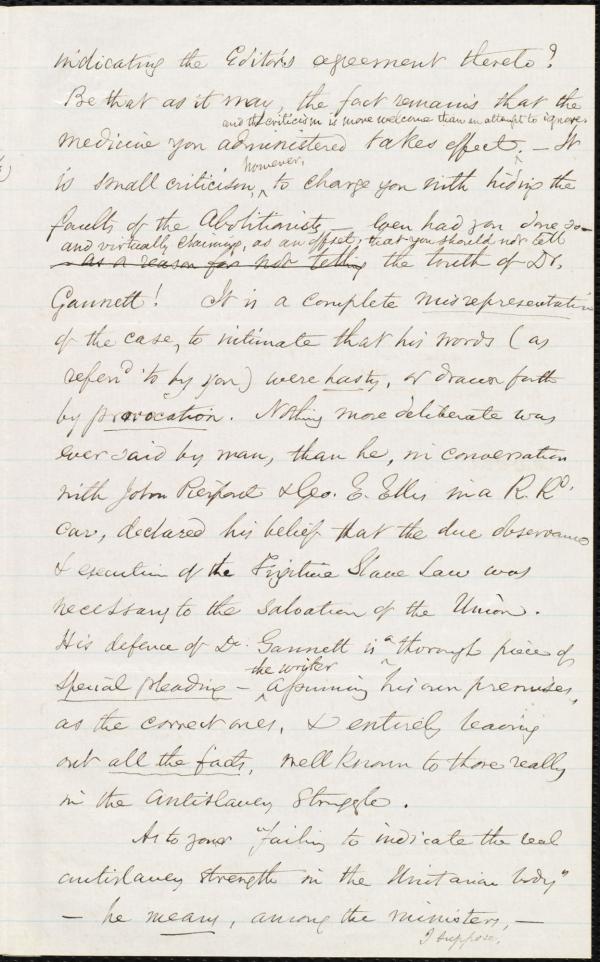 indicating the Editor's agreement thereto?
Be that as it may, the fact remains that the
and the criticism is more welcome than an attempt to ignore.
medicine you administered takes effect. — It
however,
is small criticism, to charge you with hiding the
faults of the Abolitionists — even had you done so —
and virtually claiming, as an offset, that you should not tell
as a reason for not telling the truth of Dr.
Gannett! It is a complete misrepresentation
of the case, to intimate that his words (as
refer'd to by you) were hasty, or drawn forth
by provocation. Nothing more deliberate was
ever said by man, than he, in conversation
with John Pierpont & Geo. E. Ellis in a R. Rd.
car, declared his belief that the due observance
& execution of the Fugitive Slave Law was
necessary to the salvation of the Union.
His defence of Dr. Gannett is a thorough piece of
the writer
special pleading — assuming his own premises,
as the correct ones, & entirely leaving
out all the facts, well known to those really
in the antislavery struggle.
As to your "failing to indicate the real
antislavery strength in the Unitarian body"
— he means, among the ministers, —
I suppose.